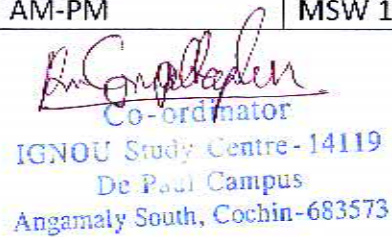 AM-PM MSW 1
Co-ordinator
IGNOU Study Centre-14119
De Paul Campus
Angamaly South, Cochin-683573